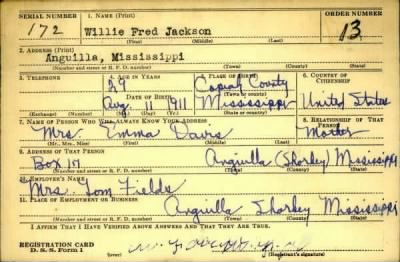 SERIAL NUMBER 1. NAME (Print) ORDER NUMBER
172 Willie Fred Jackson 13
(First) (Middle) (Last)
2. ADDRESS (Print)
Anguilla, Mississippi
(Number and street or R. F. D. number) (Town) (County) (State)
3. TELEPHONE 4. AGE IN YEARS 5. PLACE OF BIRTH 6. COUNTRY OF CITIZENSHIP
29 Copiah County
DATE OF BIRTH (Town or county)
Aug. 11 1911 Mississippi United States
(Exchange) (Number) (Mo.) (Day) (Yr.) (State or country)
7. NAME OF PERSON WHO WILL ALWAYS KNOW YOUR ADDRESS 8. RELATIONSHIP OF THAT PERSON
Mrs. Emma Davis Mother
(Mr., Mrs., Miss) (First) (Middle) (Last)
9. ADDRESS OF THAT PERSON
Box 17 Anguilla (Sharkey) Mississippi
(Number and street or R. F. D. number) (Town) (County) (State)
10. EMPLOYER'S NAME
Mrs. Tom Fields
11. PLACE OF EMPLOYMENT OR BUSINESS
Anguilla Sharkey Mississippi
(Number and street or R. F. D. number) (Town) (County) (State)
I AFFIRM THAT I HAVE VERIFIED ABOVE ANSWERS AND THAT THEY ARE TRUE.
REGISTRATION CARD
D. S. S. Form 1 (Registrant's signature)